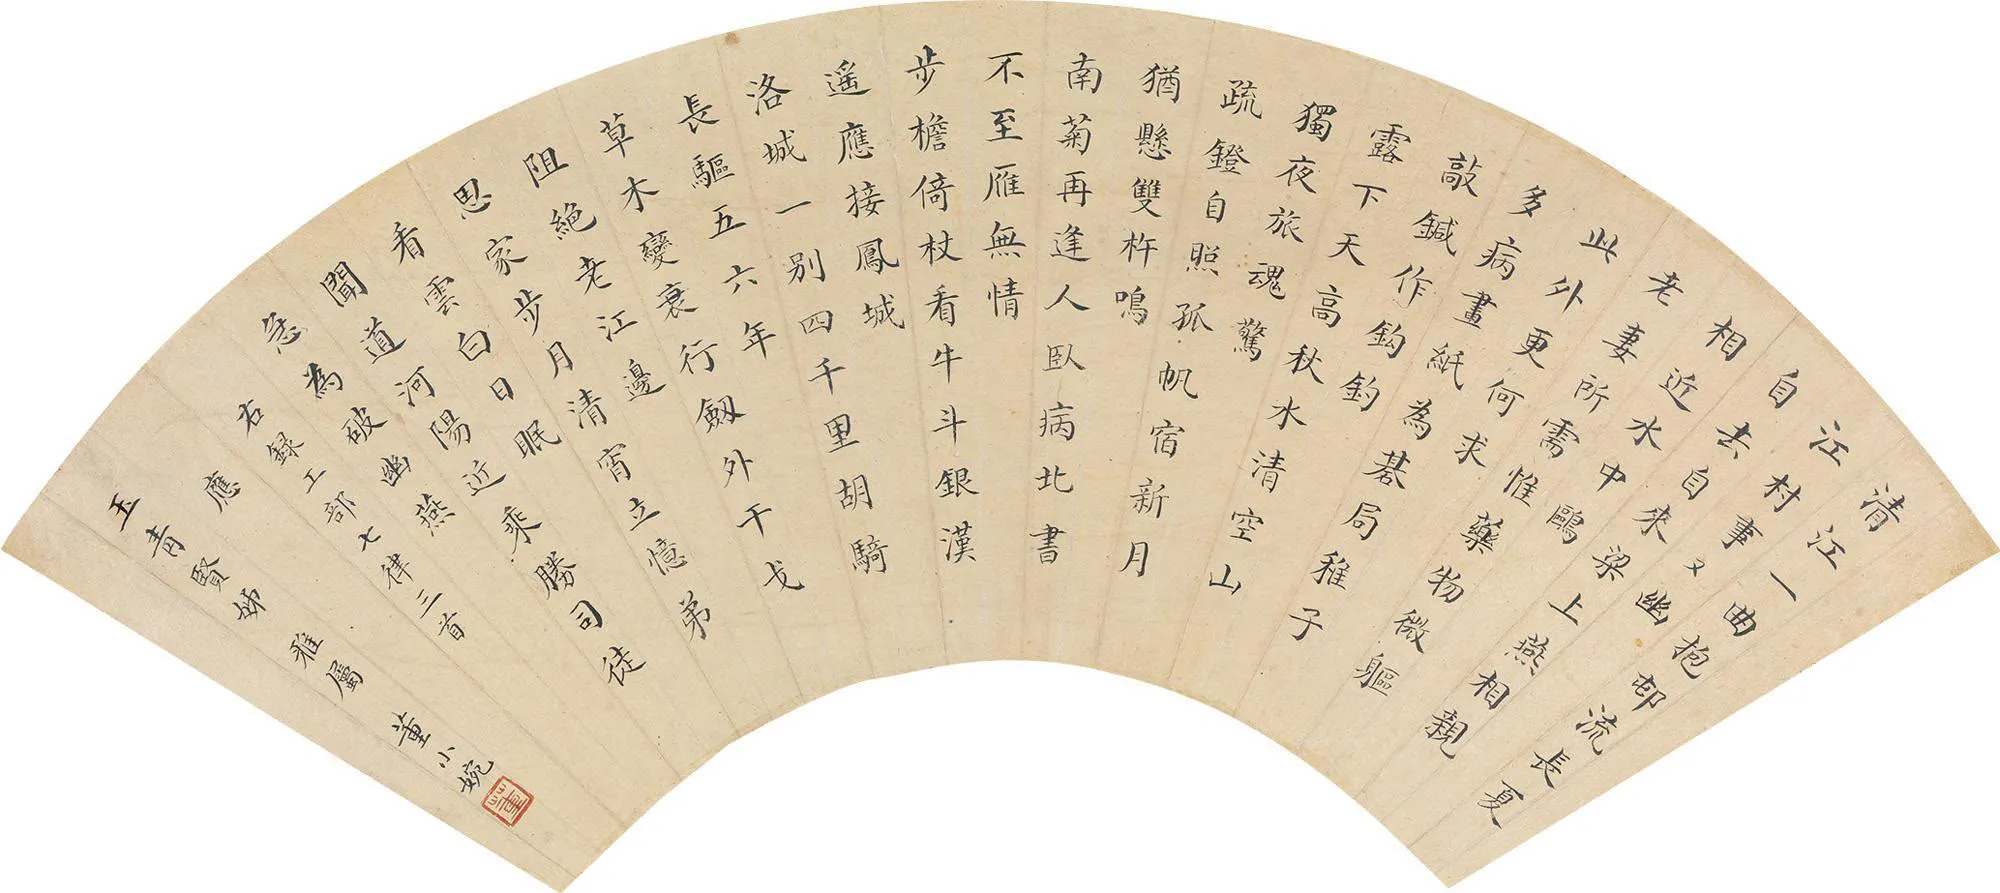 清江一曲抱邨流長夏
江村事々幽
自去自來梁上燕相親
相近水中鷗
老妻所需惟藥物微軀
此外更何求
多病畫紙為棊局稚子
敲鍼作鈎釣
露下天高秋水清空山
獨夜旅魂驚
疏鐙自照孤帆宿新月
猶懸雙杵鳴
南菊再逢人臥病北書
不至雁無情
步檐倚杖看牛斗銀漢
遥應接鳳城
洛城一別四千里胡騎
長驅五六年
草木變衰行劔外干戈
阻絕老江邊
思家步月清宵立憶弟
看雲白日眠
聞道河陽近乘勝司徒
急為破幽燕
右録工部七律三首
應
玉青賢姊雅屬 董小婉
董